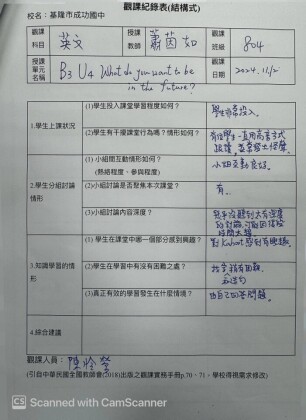 觀課紀錄表(結構式)
校名：基隆市成功國中
觀課科目 英文 授課教師 蕭茵如 觀課班級 804
授課單元名稱 B3 U4 What do you want to be in the future? 觀課日期 2024.11/2
1.學生上課狀況
(1)學生投入課堂學習程度如何？ 學生非常投入。
(2)學生有干擾課堂行為嗎？情形如何？
2.學生分組討論情形
(1)小組間互動情形如何？(熱絡程度、參與程度) 小組互動良好。
(2)小組討論是否聚焦本次課堂？ 有。
(3)小組討論內容深度？
3.知識學習的情形
(1)學生在課堂中哪一個部分感到興趣？ 對Kahoot感到有興趣。
(2)學生在學習中有沒有困難之處？
(3)真正有效的學習發生在什麼情境？ 由自己回答問題。
4.綜合建議
觀課人員：
(引自中華民國全國教師會(2018)出版之觀課實務手冊p.70、71，學校得視需求修改)
CS Scanned with CamScanner